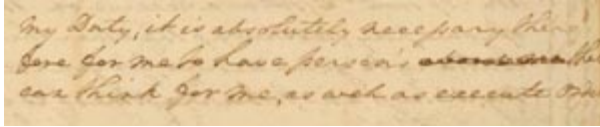 my Duty, it is absolutely necessary there
fore for me to have person's that
can think for me, as well as execute Orders